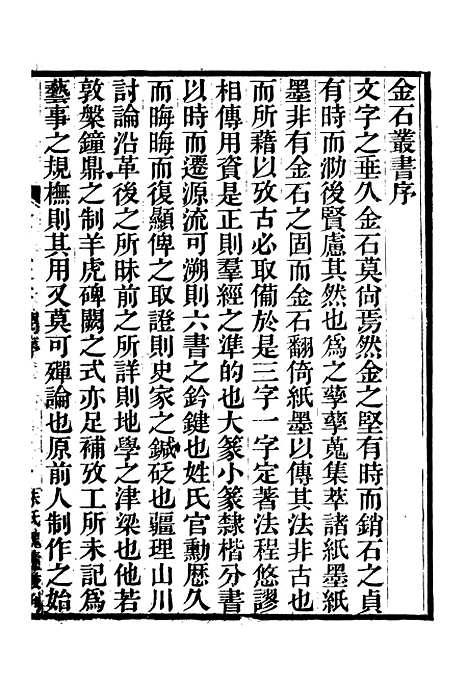 金石叢書序
文字之垂久金石莫尙焉然金之堅有時而銷石之貞
有時而泐後賢慮其然也爲之孳孳蒐集萃諸紙墨紙
墨非有金石之固而金石翻倚紙墨以傳其法非古也
而所藉以攷古必取備於是三字一字定著法程悠謬
相傳用資是正則羣經之準的也大篆小篆隸楷分書
以時而遷源流可溯則六書之鈐鍵也姓氏官勳歷久
而晦晦而復顯俾之取證則史家之鍼砭也疆理山川
討論沿革後之所昧前之所詳則地學之津梁也他若
敦槃鐘鼎之制羊虎碑闕之式亦足補攷工所未記爲
藝事之規橅則其用又莫可殫論也原前人制作之始